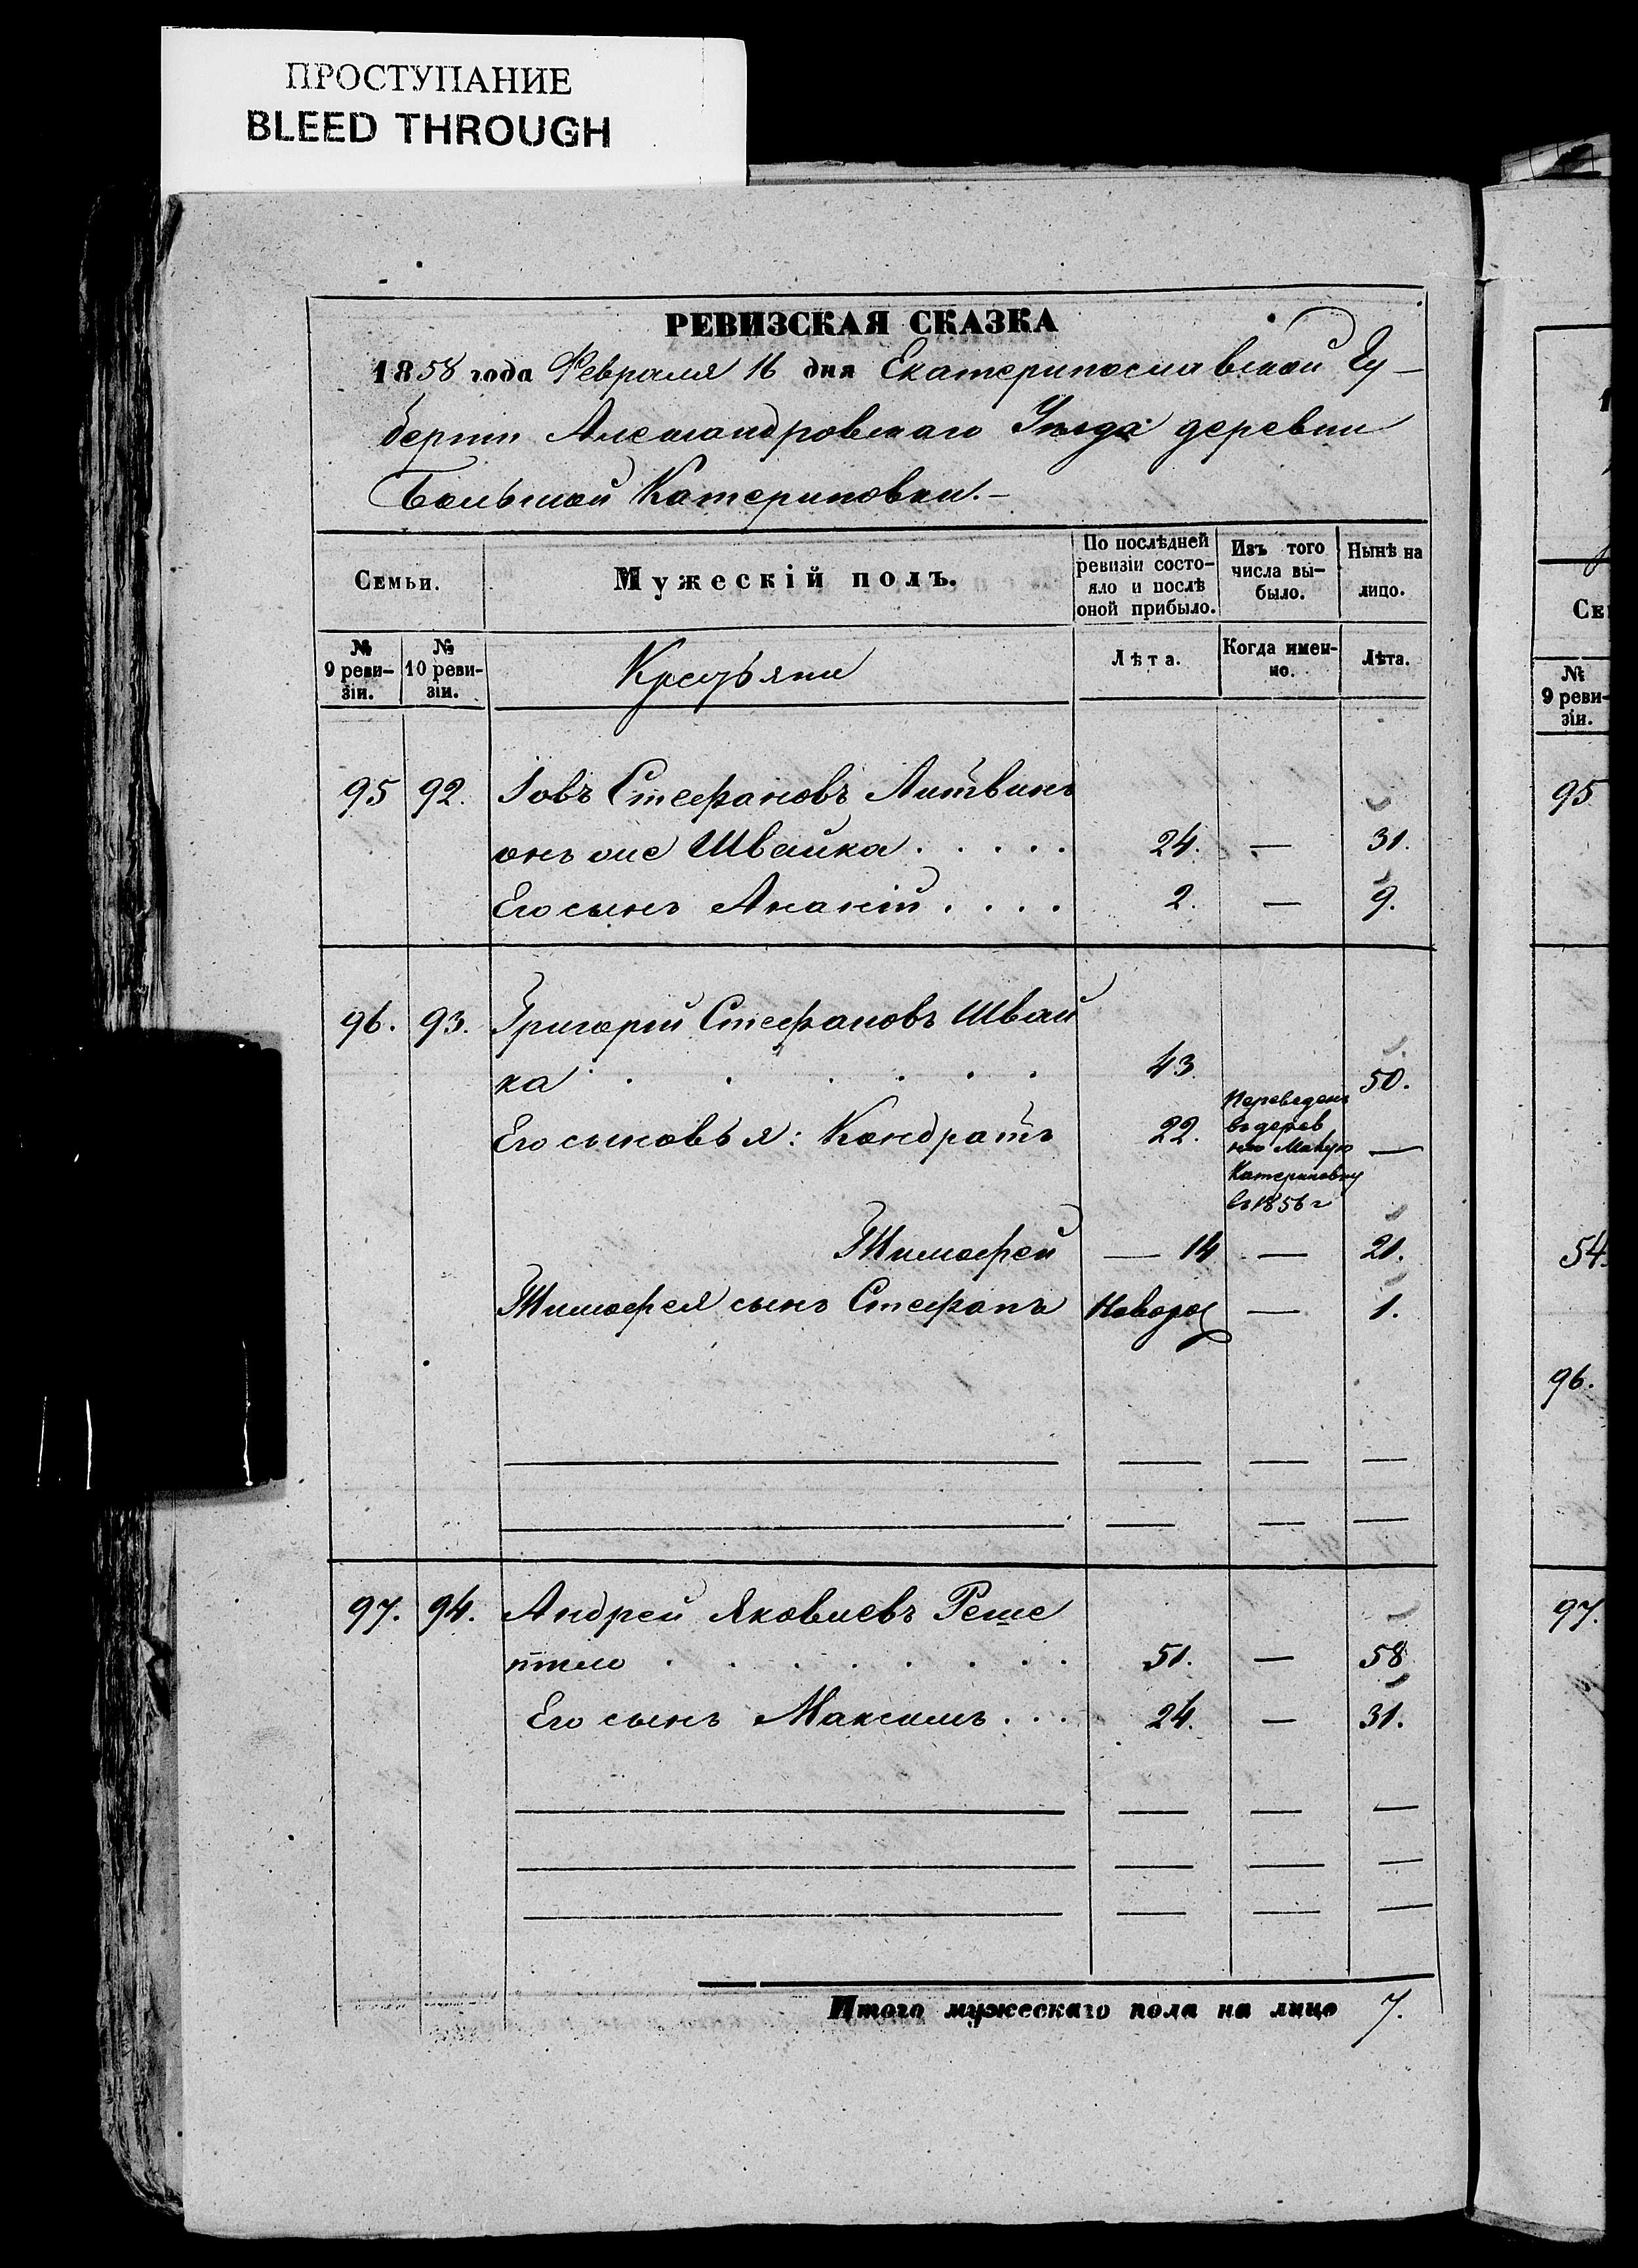 ПРОСТУПАНИЕ
BLEED THROUGH
РЕВИЗСКАЯ СКАЗКА
1858 года Февраля 16 дня Екатеринославской Гу-
берніи Александровскаго Уѣзда деревни
Большой Катериновки.-
Семьи.
Мужескій полъ.
По послѣдней ревизіи состо-
яло и послѣ
оной прибыло.
Изъ того
числа вы-
было.
Нынѣ на
лицо.
№
9 реви-
зіи.
№
10 реви-
зіи.
Крестьяни
Лѣта.
Когда имен-
но.
Лѣта.
95 92. Іовъ Стефановъ Литвинъ
онъ же Швайка . . . . . 24. — 31.
Его сынъ Ананій . . . . 2. — 9.
96. 93. Григорій Стефановъ Швай
ка . . . . . . 43 50.
Его сыновья: Кондратъ 22. Переведенъ
въ дерев
ню Малую —
Катериновку
въ 1856 г
Тимофей — 14 — 21.
Тимофея сынъ Стефанъ Новорож — 1.
97. 94. Андрей Яковлевъ Реше
тило . . . . . . . . 51. — 58
Его сынъ Максимъ . . . 24. — 31.
Итого мужескаго пола на лицо 7.
1
Се
№
9 реви-
зіи.
95
54.
96.
97.